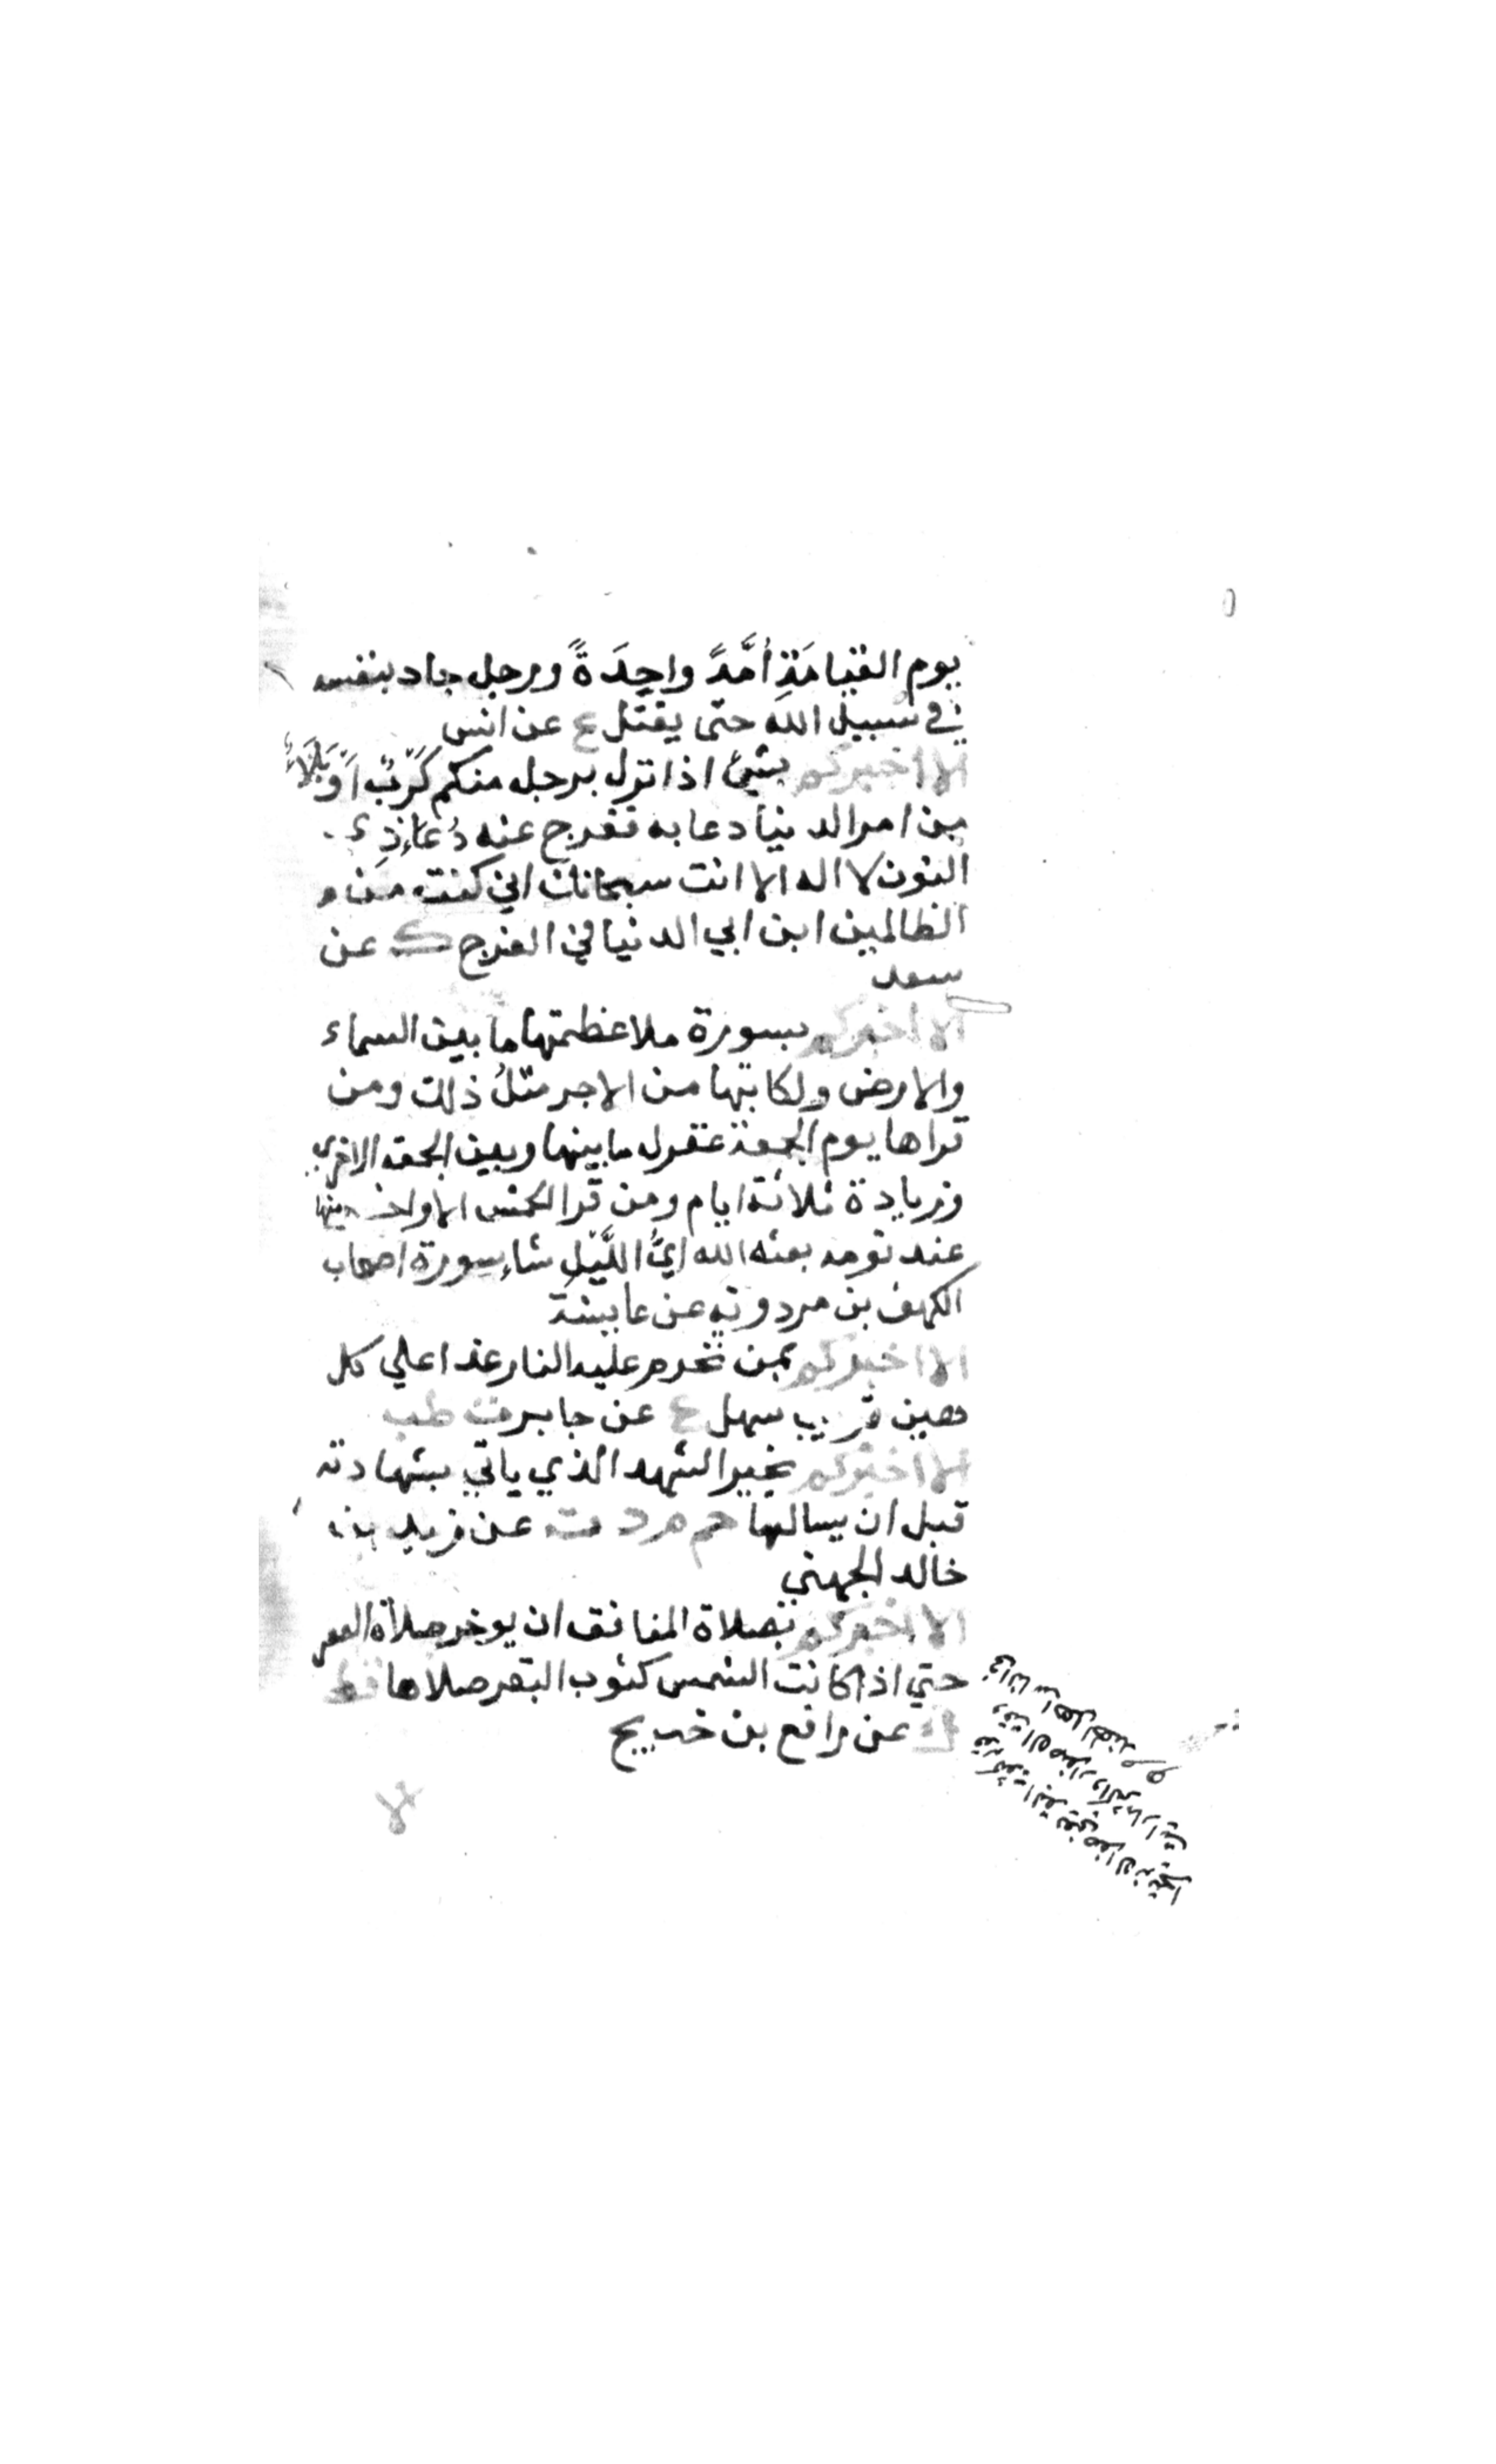 يوم القيامَةِ أمَّةً واحِدَةً ورجل جاد بنفسه
في سبيل الله حتى يقتل ع عن انس
الا اخبركم بشيءٍ اذا نزل برجل منكم كَرْبٌ اَوْ بَلَاءٌ
من امر الدنيا دعا به تفرج عنه دُعَاءِ ذي
النون لا اله الا انت سبحانك اني كنت من
الظالمين ابن ابي الدنيا في الفرج ك عن
سعد
الا اخبركم بسورة ملا عظمتها ما بين السماء
والارض ولكاتبها من الاجر مثلُ ذلك ومن
قراها يوم الجمعة غفر له ما بينها وبين الجمعة الاخري
وزيادة ثلاثة ايام ومن قرا الخمس الاواخر منها
عند نومه بعثه الله ايَّ اللَّيْلِ شاء سورة اصحاب
الكهف بن مردويه عن عايشة
الا اخبركم بمن تحرم عليه النار غدا علي كل
هين قريب سهل ع عن جابر ت طب
الا اخبركم بخير الشهد الذي ياتي بشهادته
قبل ان يسالها حم م د ت عن زيد بن
خالد الجهني
الا اخبركم بصلاة المنافق ان يوخر صلاة العصر
حتي اذا كانت الشمس كثوب البقر صلاها قط
ك عن رافع بن خديج